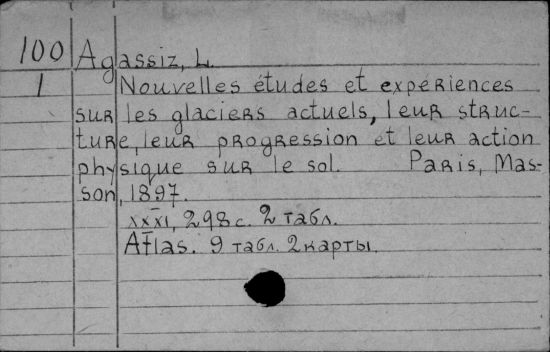 100 Agassiz, L.
1 Nouvelles études et expériences
sur les glaciers actuels, leur struc-
ture, leur progression et leur action
physique sur le sol. Paris, Mas-
son, 1897.
XXXI, 298 с. 2 табл.
Atlas. 9 табл. 2 карты.